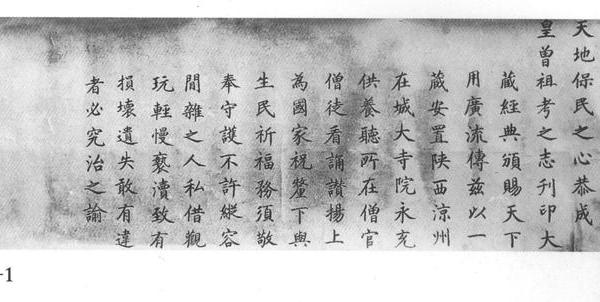 天地保民之心恭成
皇曾祖考之志刊印大
藏經典頒賜天下
用廣流傳茲以一
藏安置陝西涼州
在城大寺院永充
供養聽所在僧官
僧徒看誦讃揚上
為國家祝釐下與
生民祈福務須敬
奉守護不許縱容
閒雜之人私借觀
玩輕慢褻瀆致有
損壞遺失敢有違
者必究治之諭
-1